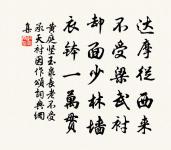 达摩从西来
不受梁武衬
却面少林墙
衣钵一万贯
黄庭坚玉泉长老不受
承天衬因作颂词典网
集